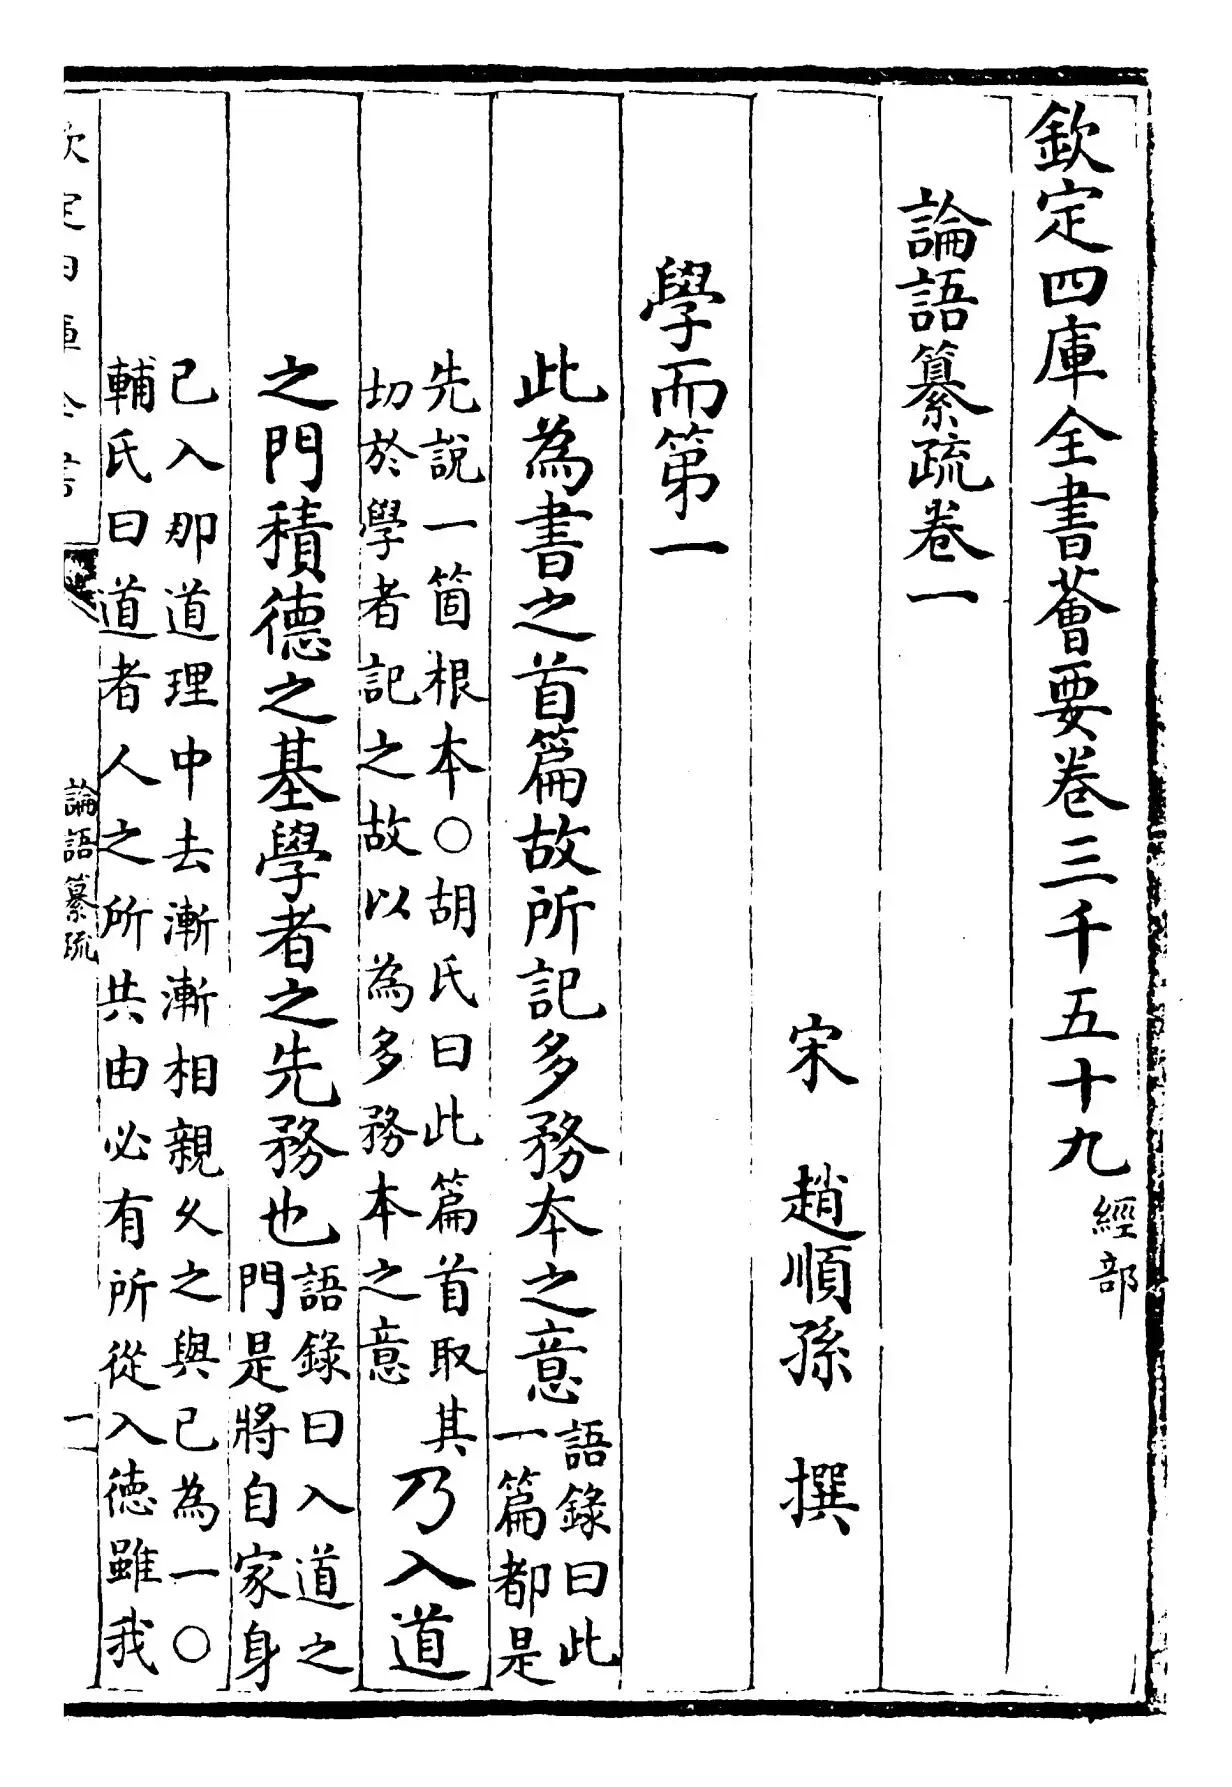 欽定四庫全書薈要卷三千五十九經部
論語纂疏卷一
宋 趙順孫 撰
學而第一
此為書之首篇故所記多務本之意語錄曰此
一篇都是
先說一箇根本○胡氏曰此篇首取其
切於學者記之故以為多務本之意
乃入道
之門積德之基學者之先務也語錄曰入道之
門是將自家身
己入那道理中去漸漸相親久之與己為一○
輔氏曰道者人之所共由必有所從入徳雖我
欽定四庫全書
論語纂疏
一